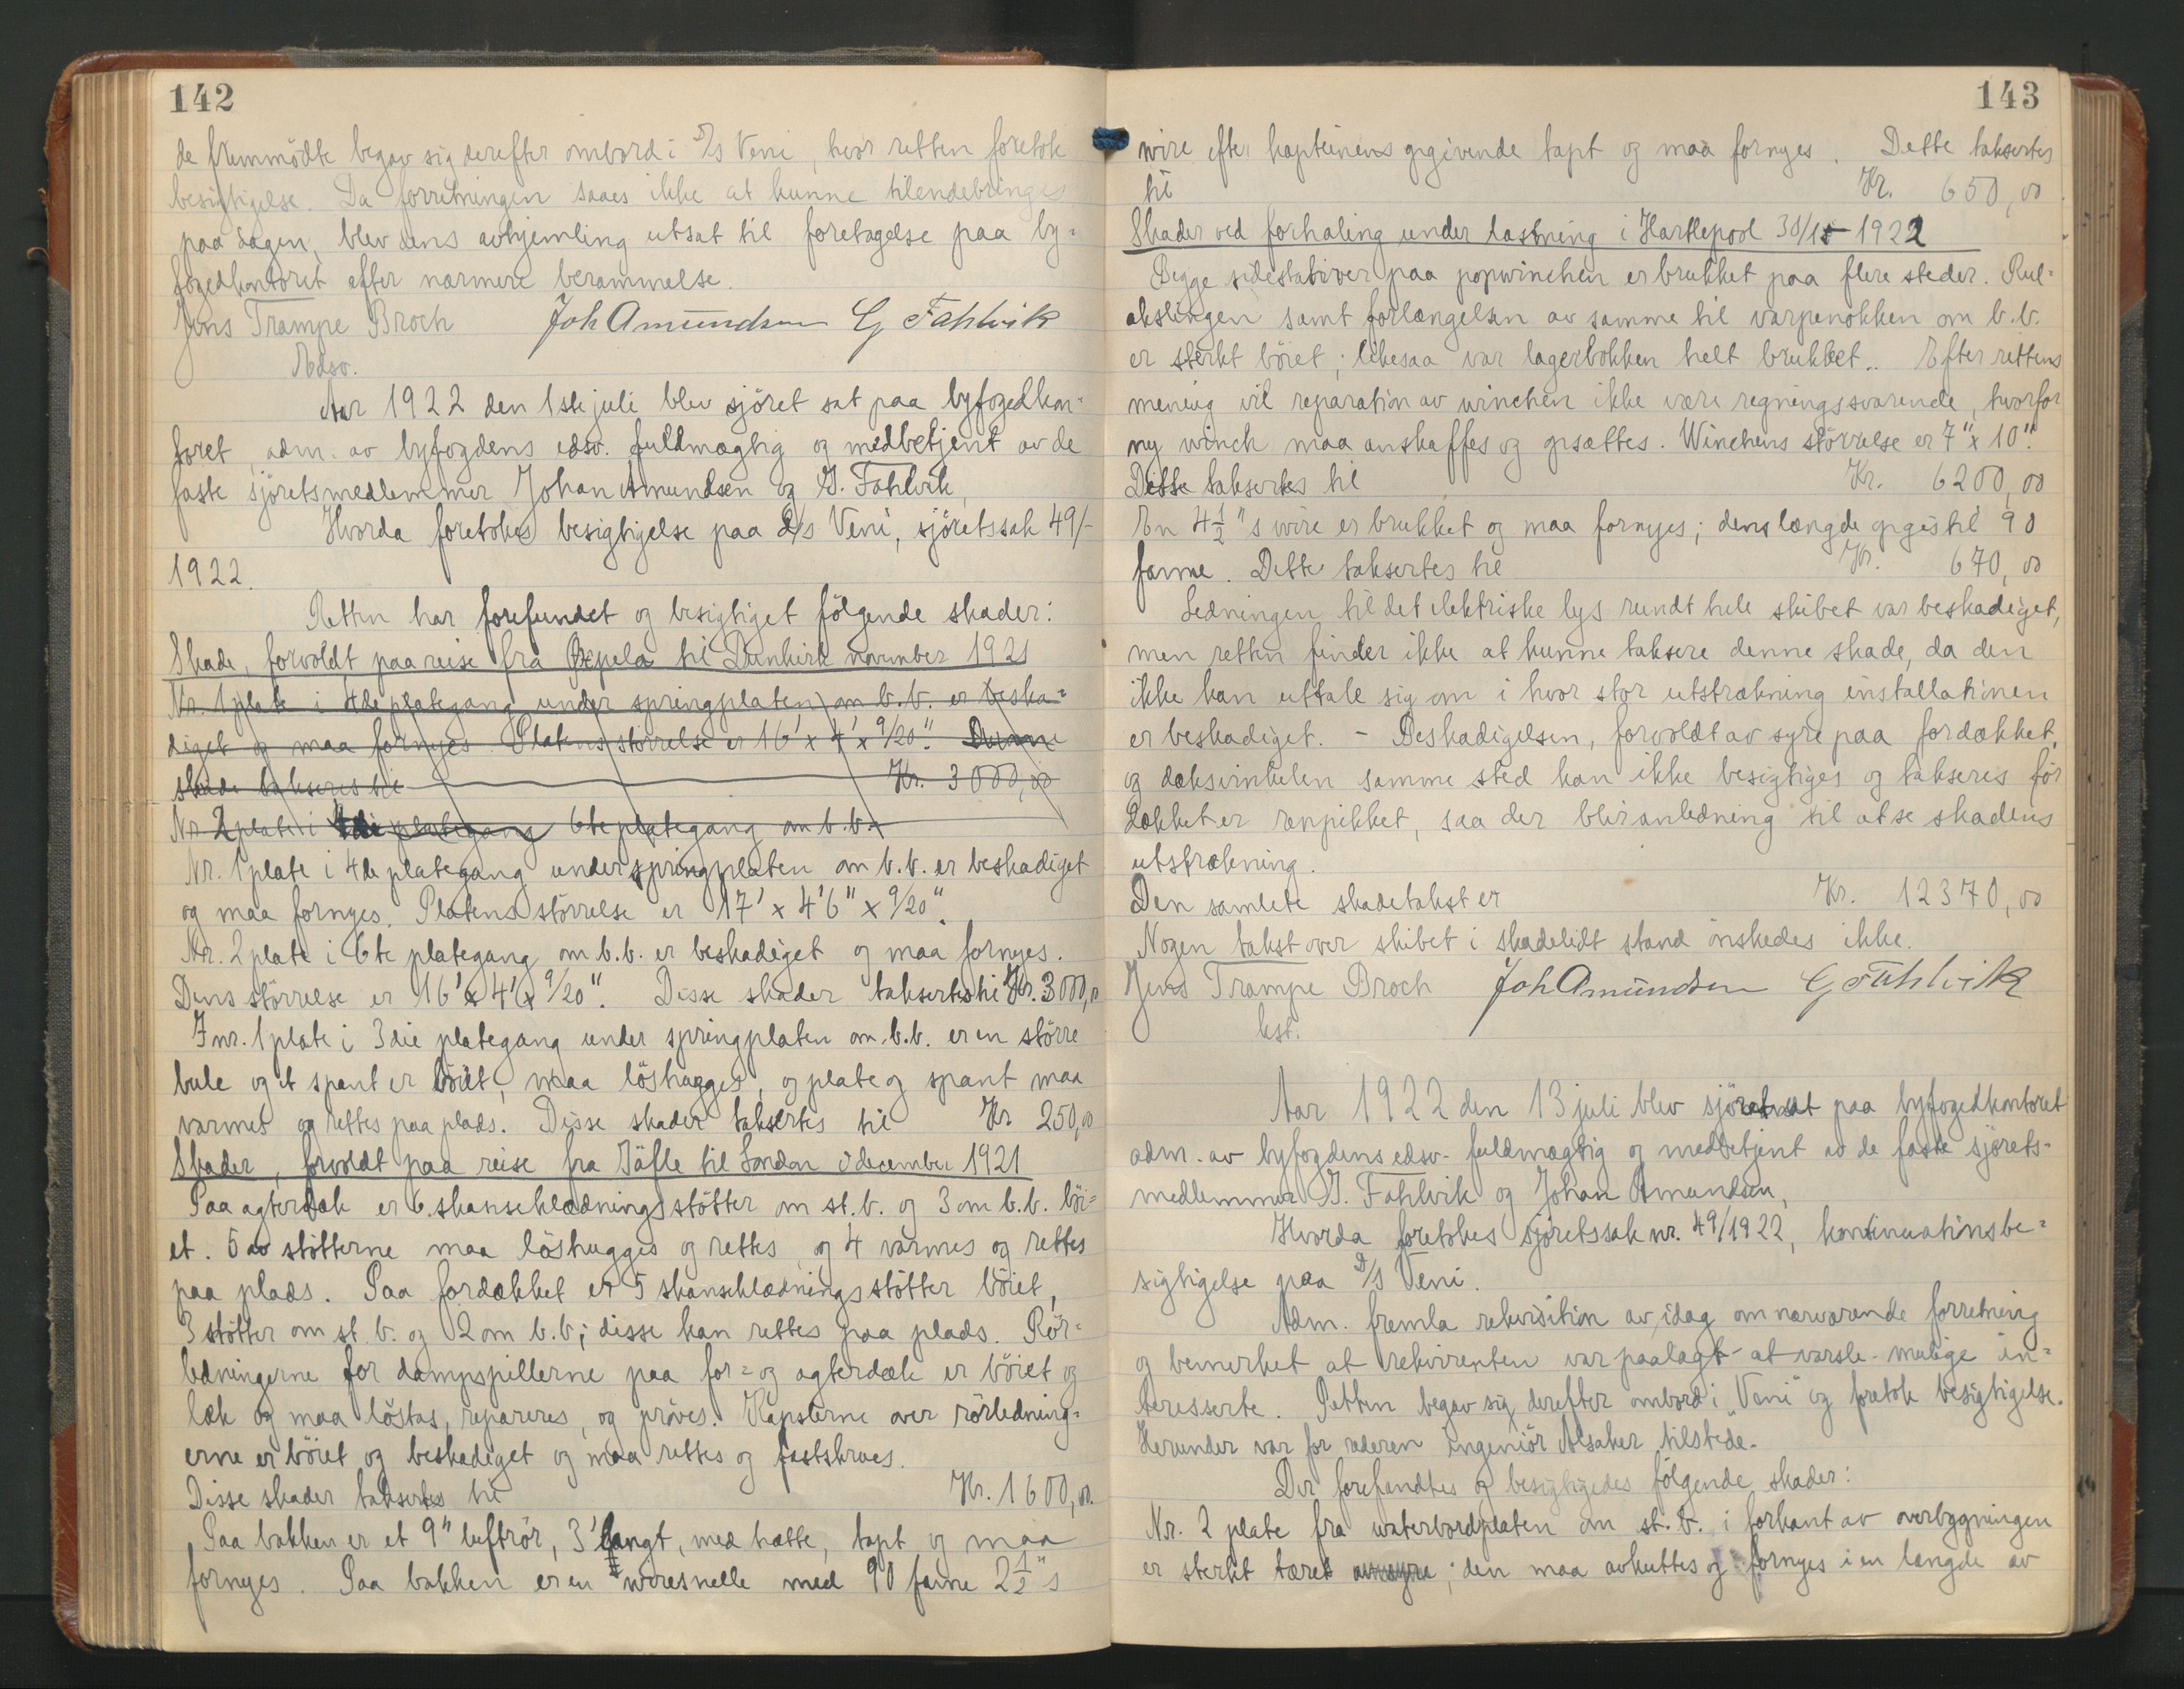 142
de fremmödte begav sig derefter ombord i D/S Veni, hvor retten foretok
besigtigelse. Da forretningen saaes ikke at kunne tilendebringes
paa dagen, blev dens avhjemling utsat til foretagelse paa by=
fogedkontoret efter nærmere berammelse.
Jens Trampe Broch Joh Amundsen G Fahlvik
Edsv.
Aar 1922 den 1ste juli blev sjöret sat paa byfogedkon=
toret, adm. av byfogdens edsv. fuldmægtig og medbetjent av de
faste sjöretsmedlemmer Johan Amundsen og G. Fahlvik,
Hvorda foretokes besigtigelse paa D/S Veni, sjöretssak 49/-
1922.
Retten har forefundet og besigtiget følgende skader:
Skade, forvoldt paa reise fra til Dunkirk november 1921
Nr. 1 plate i 4de plategang under springplaten om b.b. er beska=
diget og maa fornyes. Platens störrelse er 16' x 4' x 9/20". Denne
skade takseres til Kr. 3000,00
Nr 2 plate i 4de plategang 6te plategang om b.b.
Nr. 1 plate i 4de plategang under springplaten om b.b. er beskadiget
og maa fornyes. Platens störrelse er 17' x 4'6" x 9/20".
Nr. 2 plate i 6te plategang om b.b. er beskadiget og maa fornyes.
Dens störrelse er 16' x 4' x 9/20". Disse skader taksertes til Kr. 3000,00
I nr. 1 plate i 3die plategang under springplaten om b.b. er en större
bule og et spant er böiet, maa löshugges, og plate og spant maa
varmes og rettes paa plads. Disse skader taksertes til Kr 250,00
Skader, forvoldt paa reise fra Gäfle til London i december 1921
Paa agterdæk er 6 skanseklædningsstötter om st.b. og 3 om b.b. böi=
et. 5 av stötterne maa löshugges og rettes, og 4 varmes og rettes
paa plads. Paa fordækket er 5 skanseklædningsstötter böiet,
3 stötter om st.b. og 2 om b.b; disse kan rettes paa plads. Rör=
ledningerne for dampspillerne paa for= og agterdæk er böiet og
læk og maa löstas, repareres, og pröves. Kapslerne over rörledning=
erne er böiet og beskadiget og maa rettes og fastskrues.
Disse skader taksertes til Kr. 1600,00.
Paa bakken er et 9" luftrör, 3' langt, med hætte, tapt og maa
fornyes. Paa bakken er en wiresnelle med 90 favne 2 1/2" s
143
wire efter kapteinens opgivende tapt og maa fornyes. Dette taksertes
til Kr. 650,00
Skader ved forhaling under lastning i Hartlepool 1922
Begge sidestativer paa popwinchen er brukket paa flere steder. Rul=
akslingen samt forlængelsen av samme til varpenokken om b.b.
er sterkt böiet; likesaa var lagerbokken helt brukket.. Efter rettens
mening vil reparation av winchen ikke være regningssvarende, hvorfor
ny winch maa anskaffes og opsættes. Winchens störrelse er 7" x 10".
Dette taksertes til Kr. 6200,00
En 4 1/2" s wire er brukket og maa fornyes; dens længde opgis til 90
favne. Dette taksertes til Kr. 670,00
Ledningen til det elektriske lys rundt hele skibet var beskadiget,
men retten finder ikke at kunne taksere denne skade, da den
ikke kan uttale sig om i hvor stor utstrækning installationen
er beskadiget. - Beskadigelsen, forvoldt av syre paa fordækket,
og dæksvinkelen samme sted kan ikke besigtiges og takseres før
dækket er renpikket, saa der blir anledning til at se skadens
utstrækning.
Den samlete skadetakst er Kr. 12370,00
Nogen takst over skibet i skadelidt stand önskedes ikke.
Jens Trampe Broch Joh Amundsen G Fahlvik
kst.
Aar 1922 den 13 juli blev sjöret sat paa byfogedkontoret
adm. av byfogdens edsv. fuldmægtig og medbetjent av de faste sjörets-
medlemmer G. Fahlvik og Johan Amundsen,
Hvorda foretokes sjöretssak nr. 49/1922, kontinuationsbe=
sigtigelse paa D/S Veni.
Adm. fremla rekvisition av idag om nærværende forretning
og bemerket at rekvirenten var paalagt at varsle mulige in=
teresserte. Retten begav sig derefter ombord i "Veni" og foretok besigtigelse.
Herunder var for rederen ingeniör Alsaker tilstede.
Der forefandtes og besigtigedes fölgende skader:
Nr. 2 plate fra waterbordplaten om st.b. i forkant av overbygningen
er sterkt tæret av syre; den maa avkuttes og fornyes i en længde av